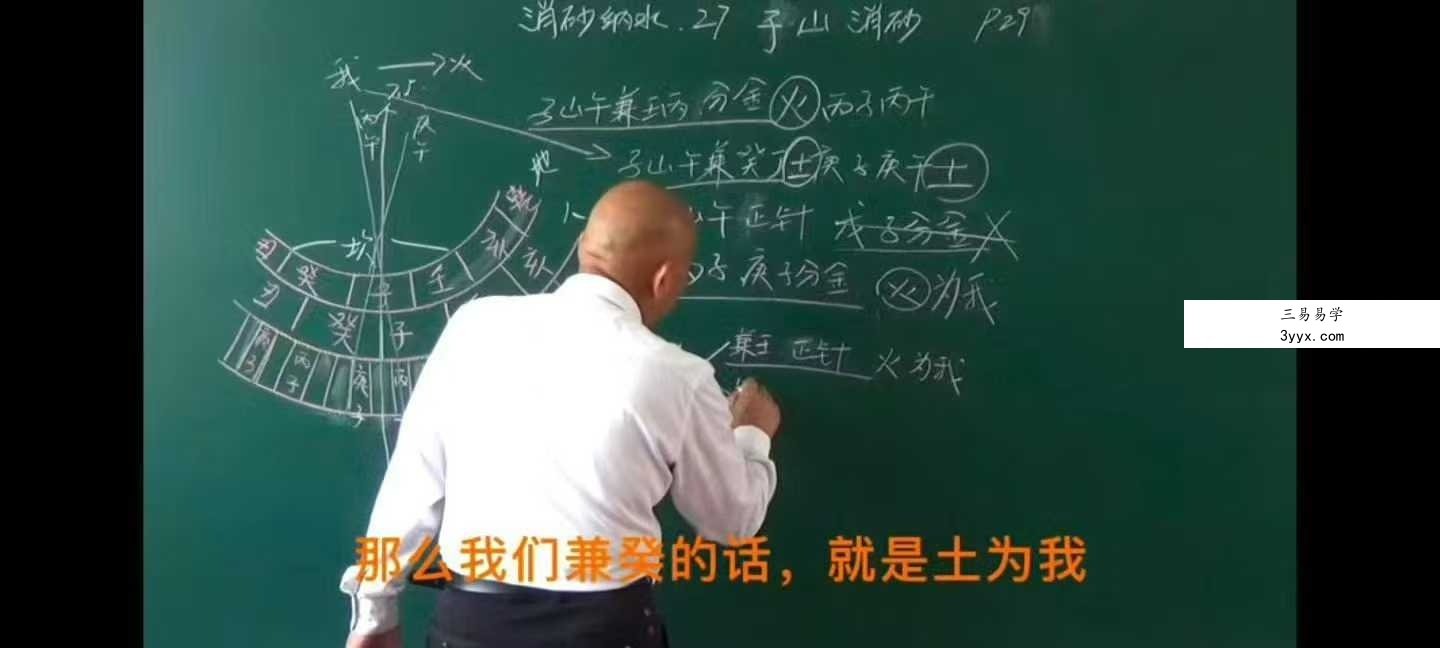 消砂纳水.27 子山消砂 P29
我 → 火
7.5
子山午兼壬丙分金火丙子丙午
丙午
庚午
地
子山午兼癸丁土庚子庚午土
人
山午正针 戊子分金
子庚子分金 火为我
兼壬 正针 火为我
坎
丑 癸 子 壬 亥 乾
丑 癸 子 亥
丙子 庚子 丙
三易易学
3yyx.com
那么我们兼癸的话，就是土为我